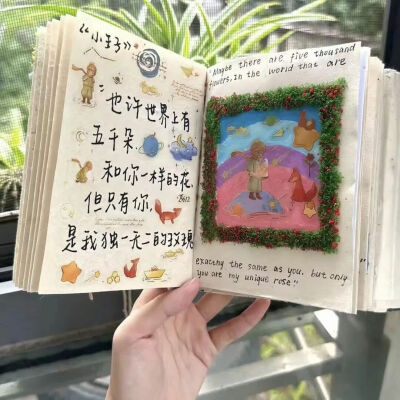 《小王子》
"也许世界上有
五千朵
和你一样的花,
但只有你,
是我独一无二的玫瑰
"Maybe there are five thousand
flowers, in the world that are
exactly the same as you. but only
you are my unique rose"